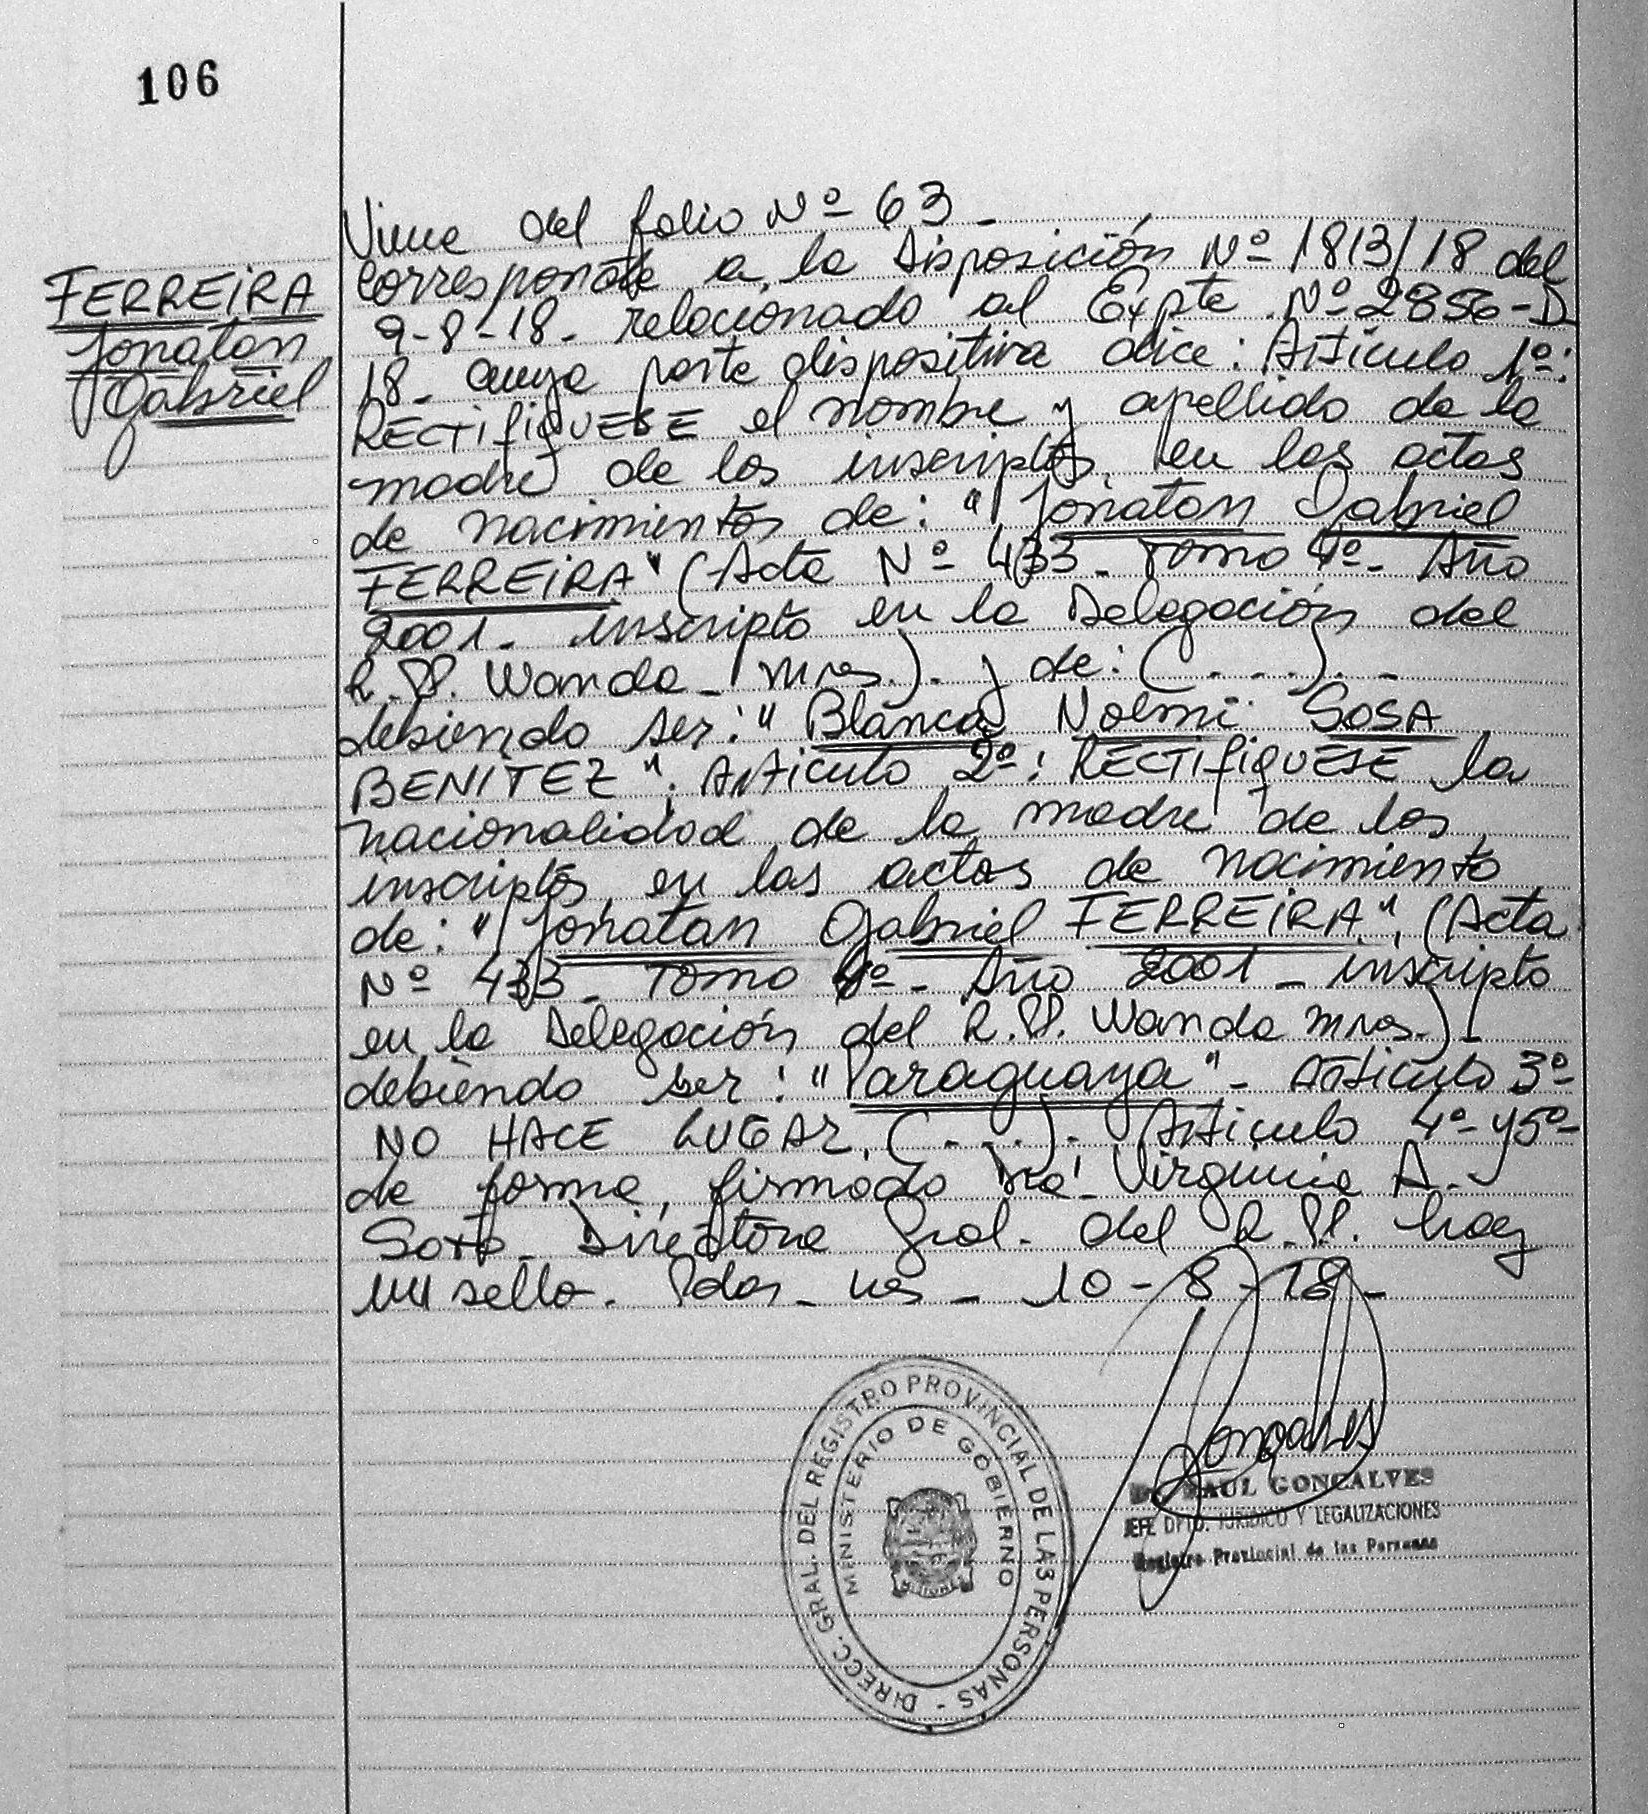 106
FERREIRA
Jonatan
Gabriel
Viene del folio Nº 63 -
Corresponde a la Disposición Nº 1813/18 del
9-8-18- relacionado al Expte Nº 2856-D
18- cuya parte dispositiva dice: Artículo 1º:
RECTIFIQUESE el nombre y apellido de la
madre de los inscriptos en las actas
de nacimientos de: "Jonatan Gabriel
FERREIRA" (Acta Nº 433- Tomo 4º- Año
2001- inscripto en la Delegación del
R.P. Wanda- Mnes.). y de: (....).-
debiendo ser: "Blanca Noemi SOSA
BENITEZ". Artículo 2º: RECTIFIQUESE la
nacionalidad de la madre de los
inscriptos en las actas de nacimiento
de: "Jonatan Gabriel FERREIRA", (Acta
Nº 433- Tomo 4º- Año 2001- inscripto
en la Delegación del R.P. Wanda Mnes.)
debiendo ser: "Paraguaya"- Artículo 3º-
NO HACE LUGAR, (....). Artículo 4º- y 5º-
de forma, firmado Dra. Virginia A.
Soto- Directora Gral. del R.P. hay
un sello. Pdas- Mes- 10-8-18-
DIRECC. GRAL. DEL REGISTRO PROVINCIAL DE LAS PERSONAS -
MINISTERIO DE GOBIERNO
MISIONES
Goncalves
Dr. RAUL GONCALVES
JEFE DPTO. JURIDICO Y LEGALIZACIONES
Registro Provincial de las Personas